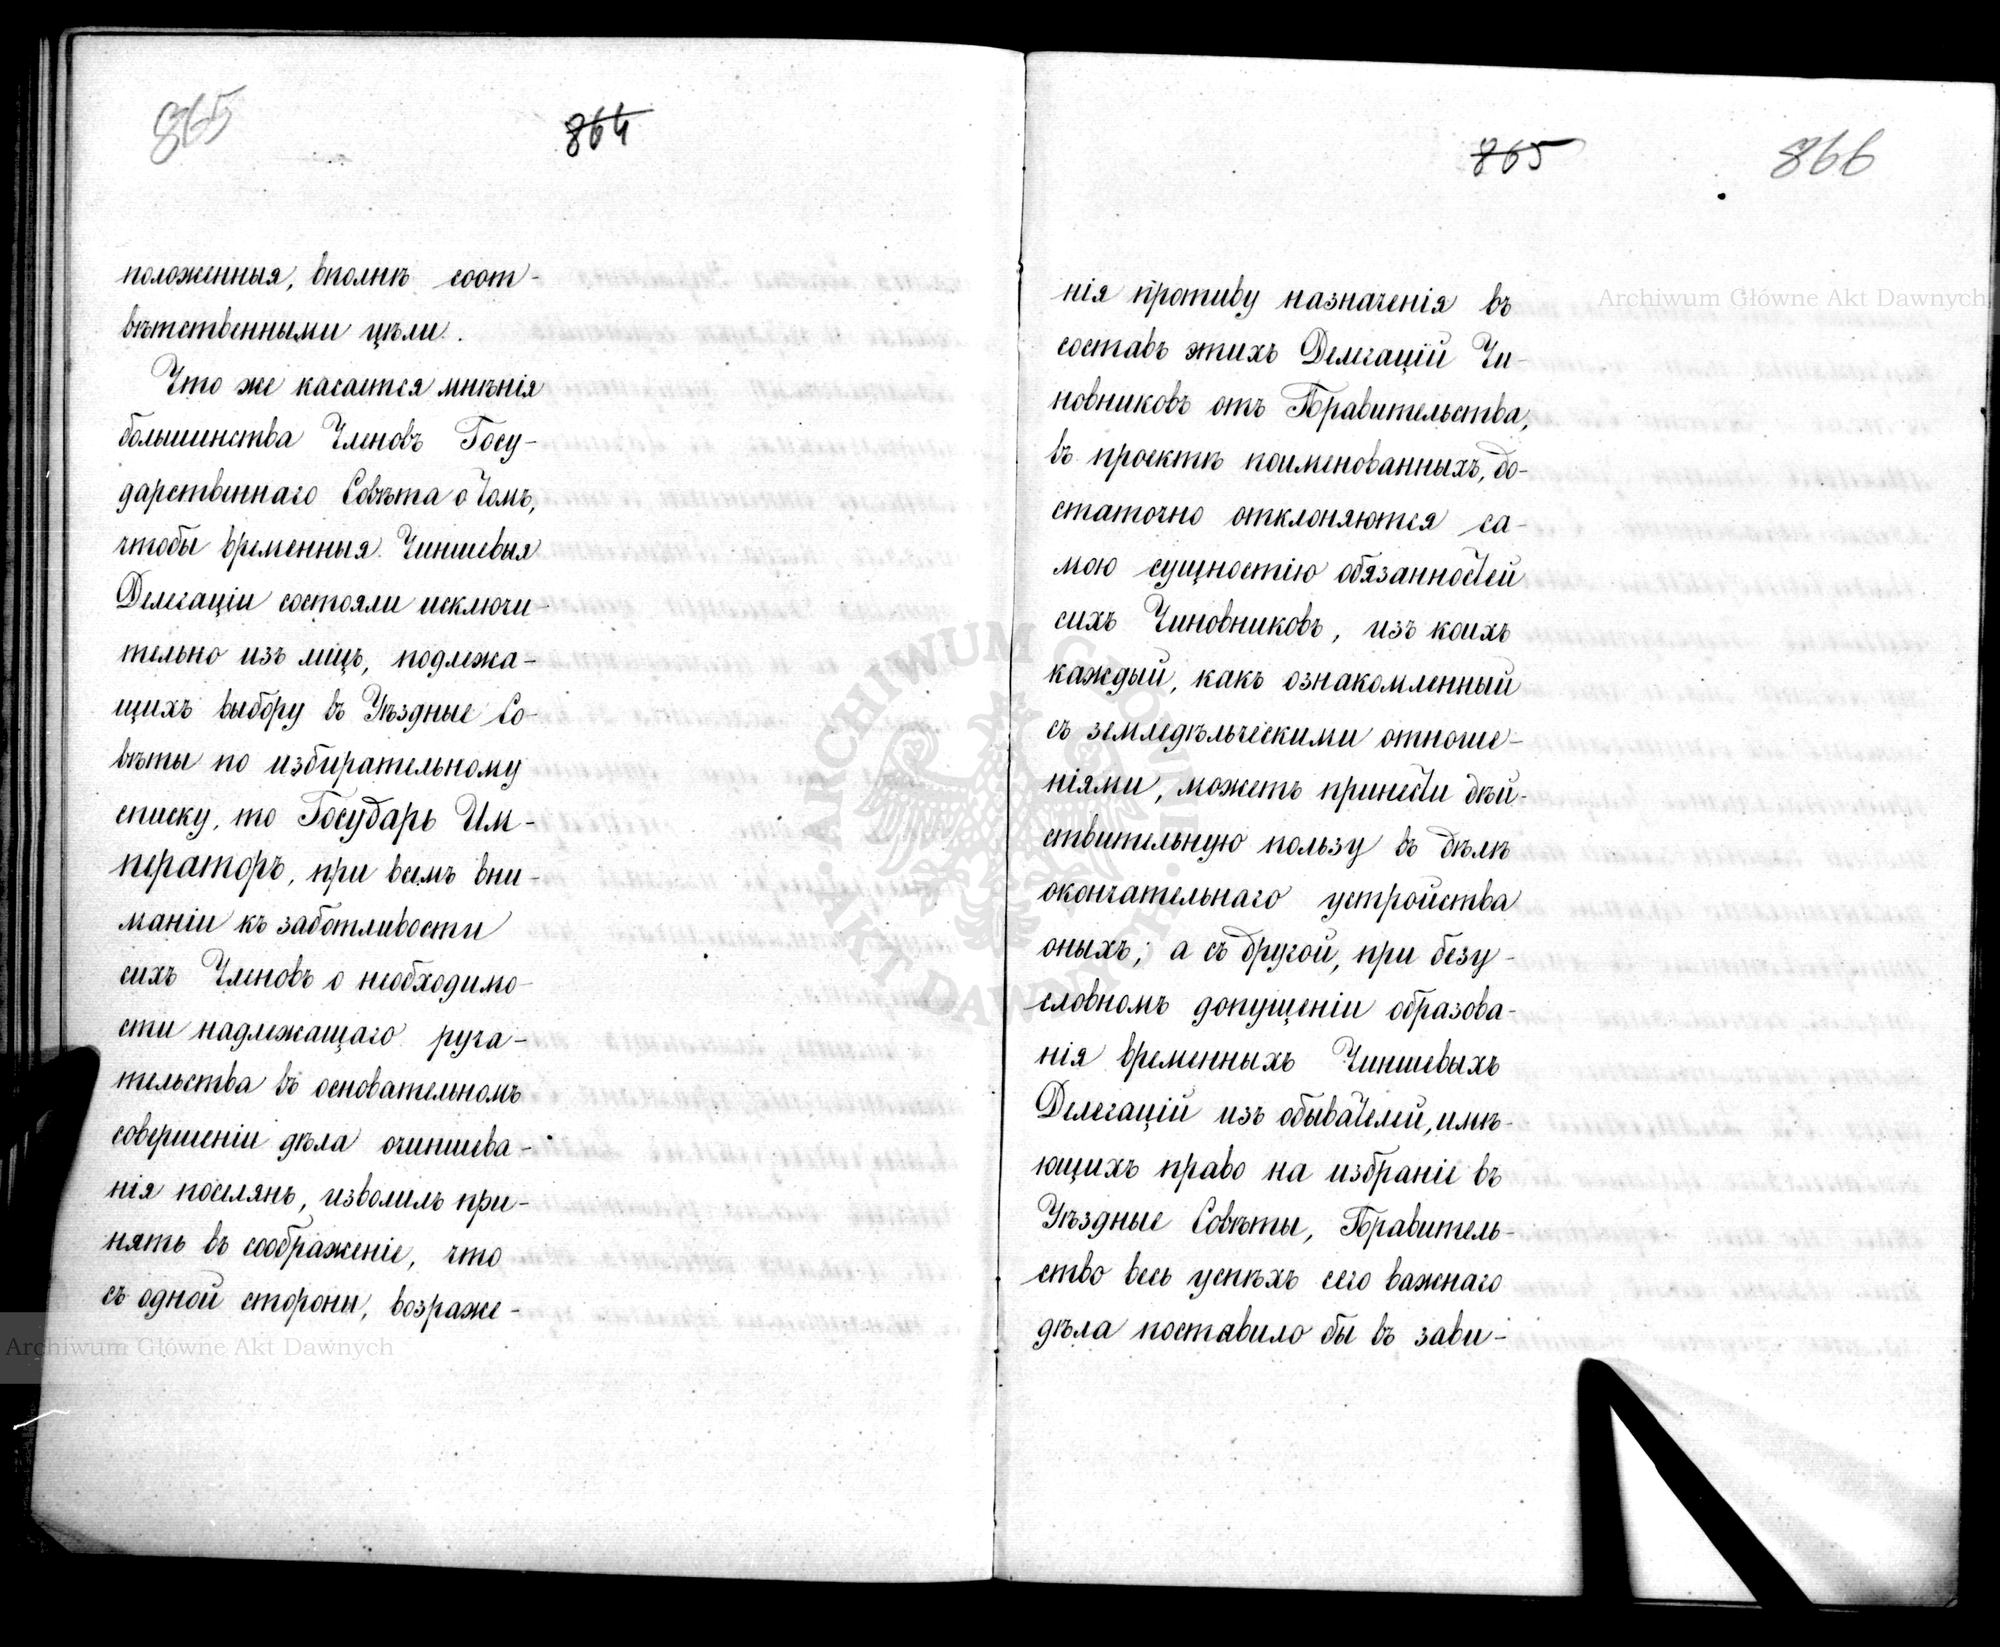 865
864
положенныя, вполнѣ соот-
вѣтственными цѣли.
Что же касается мнѣнія
большинства Членовъ Госу-
дарственнаго Совѣта о томъ,
чтобы временныя Чиншевыя
Делегаціи состояли исключи-
тельно изъ лицъ, подлежа-
щихъ выбору въ Уѣздные Со-
вѣты по избирательному
списку, то Государь Им-
ператоръ, при всемъ вни-
маніи къ заботливости
сихъ Членовъ о необходимо-
сти надлежащаго руча-
тельства въ основательномъ
совершеніи дѣла очиншева-
нія поселянъ, изволилъ при-
нять въ соображеніе, что
съ одной стороны, возраже-
865
866
нія противу назначенія въ
составъ этихъ Делегацій Чи-
новниковъ отъ Правительства,
въ проектѣ поименованныхъ, до-
статочно отклоняются са-
мою сущностію обязанностей
сихъ Чиновниковъ, изъ коихъ
каждый, какъ ознакомленный
съ земледѣльческими отноше-
ніями, можетъ принести дѣй-
ствительную пользу въ дѣлѣ
окончательнаго устройства
оныхъ; а съ другой, при безу-
словномъ допущеніи образова-
нія временныхъ Чиншевыхъ
Делегацій изъ обывателей, имѣ-
ющихъ право на избраніе въ
Уѣздные Совѣты, Правитель-
ство весь успѣхъ сего важнаго
дѣла поставило бы въ зави-
Archiwum Główne Akt Dawnych
Archiwum Główne Akt Dawnych
ARCHIWUM GŁÓWNE AKT DAWNYCH